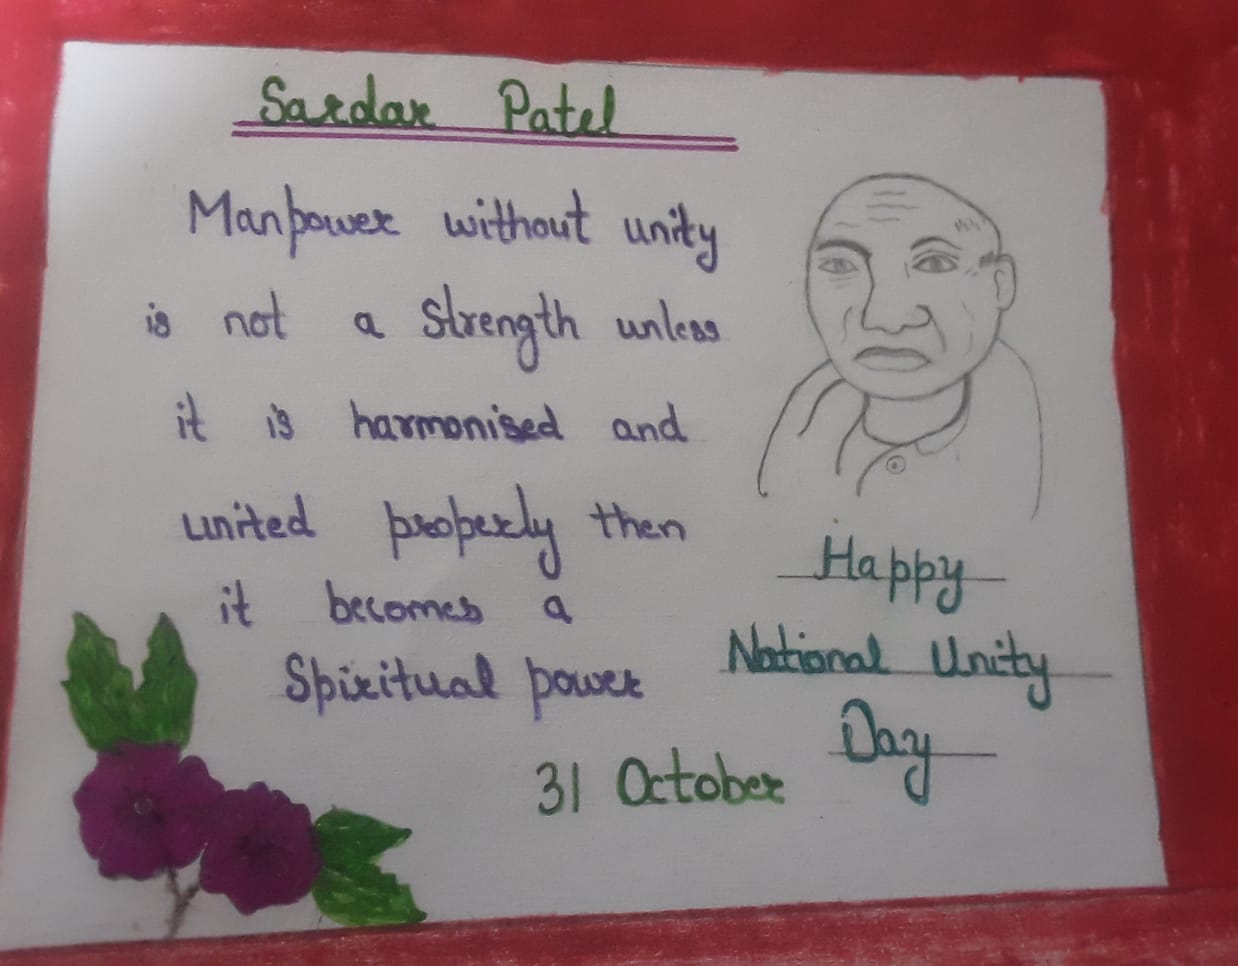 Sardar Patel
Manpower without unity
is not a strength unless
it is harmonised and
united properly then
it becomes a
Spiritual power
31 October
Happy
National Unity
Day